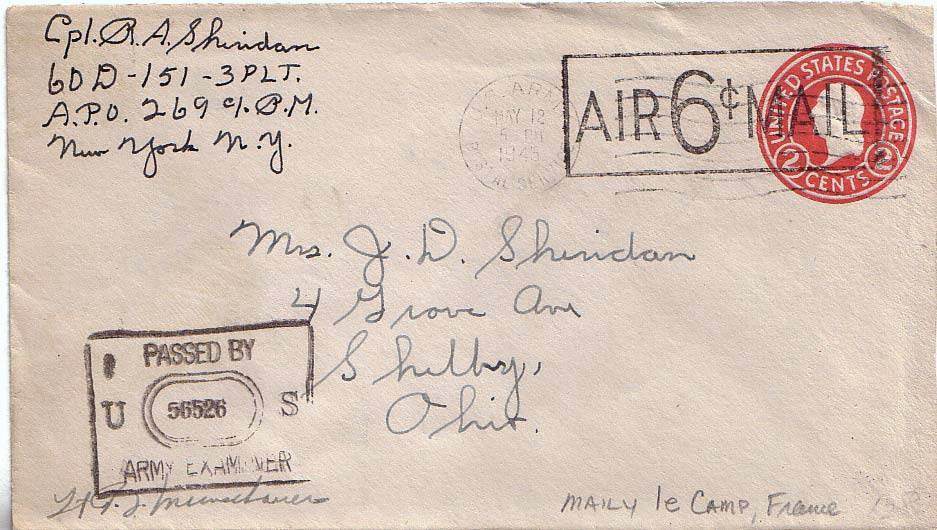 Cpl. R. A. Sheridan
60 D - 151 - 3 PLT.
A.P.O. 269 % P.M.
New York N.Y.
U.S. ARMY
MAY 12
5 PM
1945
POSTAL SERVICE
AIR 6¢ MAIL
UNITED STATES POSTAGE
2 2
CENTS
Mrs. J. D. Sheridan
4 Grove Ave
Shelby,
Ohio.
PASSED BY
U 56526 S
ARMY EXAMINER
Lt.
MAILY le CAMP, France